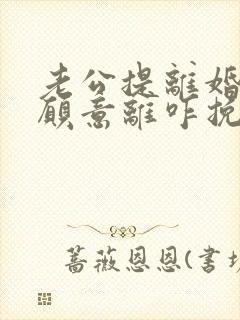 老公提離婚
願意離咋挽
蔷薇恩恩(書坊